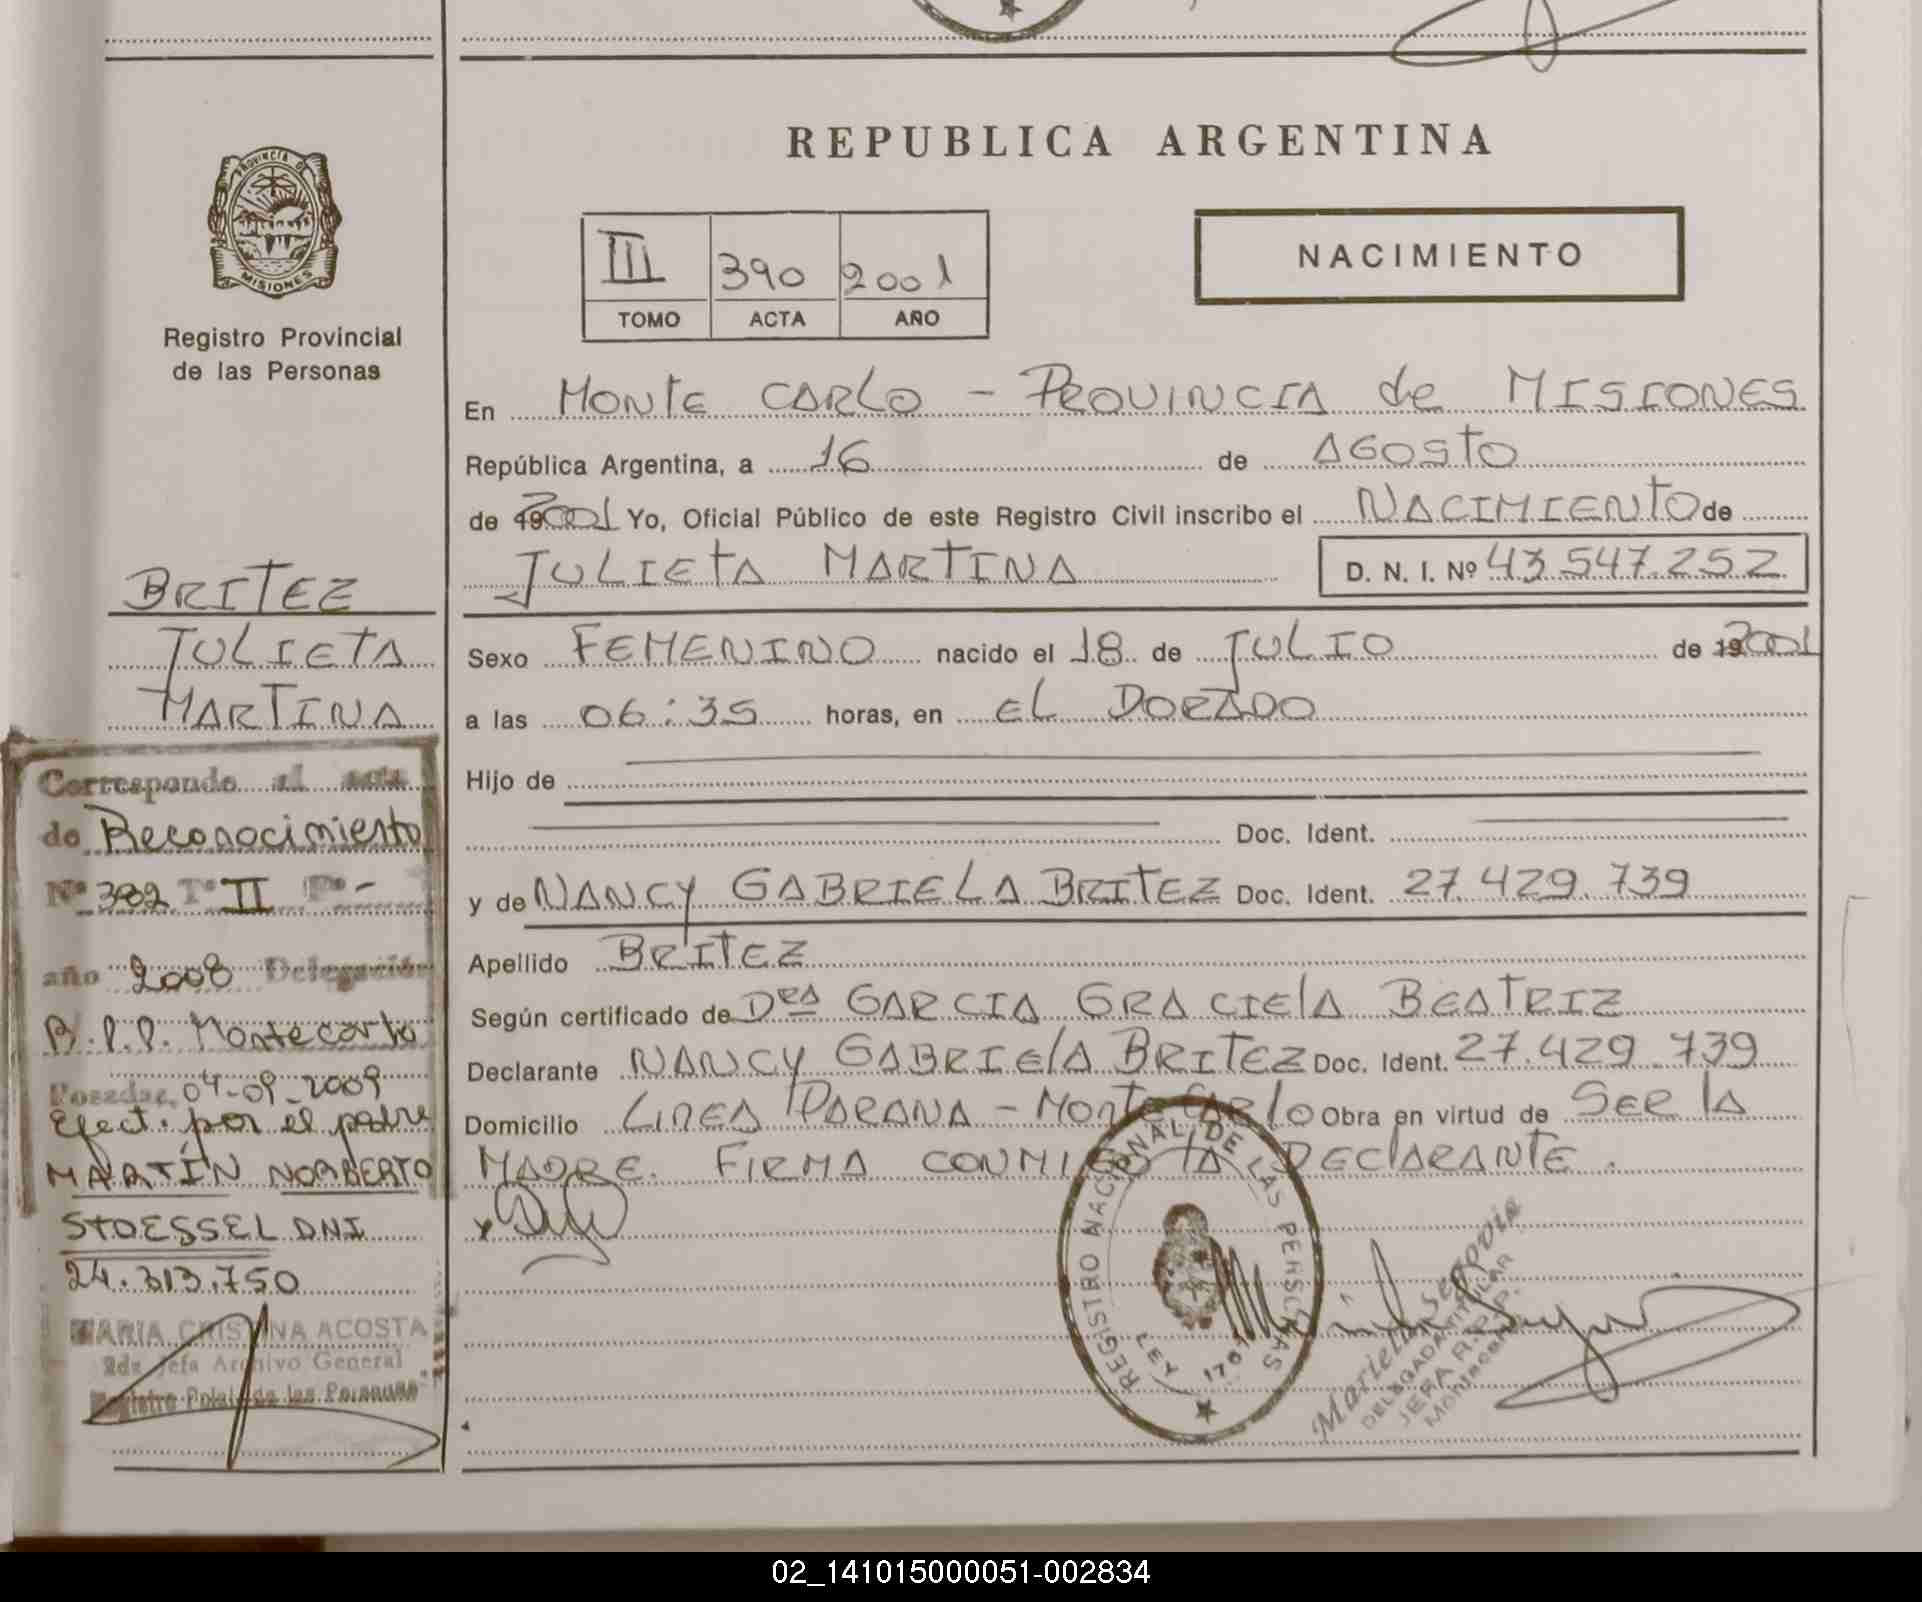 REPUBLICA ARGENTINA
PROVINCIA DE
MISIONES
Registro Provincial
de las Personas
III 390 2001
TOMO ACTA AÑO
NACIMIENTO
En MONTE CARLO - PROVINCIA de MISIONES
República Argentina, a 16 de AGOSTO
de 2001 Yo, Oficial Público de este Registro Civil inscribo el NACIMIENTO de
JULIETA MARTINA D. N. I. Nº 43.547.252
Sexo FEMENINO nacido el 18 de JULIO de 2001
a las 06:35 horas, en EL DORADO
Hijo de
Doc. Ident.
y de NANCY GABRIELA BRITEZ Doc. Ident. 27.429.739
Apellido BRITEZ
Según certificado de DRA GARCIA GRACIELA BEATRIZ
Declarante NANCY GABRIELA BRITEZ Doc. Ident. 27.429.739
Domicilio LINEA PARANA - MONTE CARLO Obra en virtud de SER LA
MADRE. FIRMA CONMIGO LA DECLARANTE.
BRITEZ
JULIETA
MARTINA
Corresponde al acta
de Reconocimiento
Nº 382 Tº II Fº -
año 2008 Delegación
R.P.P. Montecarlo
Posadas, 04-09-2009
Efect. por el padre
MARTÍN NORBERTO
STOESSEL DNI
24.313.750
MARIA CRISTINA ACOSTA
2da Jefa Archivo General
Registro Pcial. de las Personas
REGISTRO NACIONAL DE LAS PERSONAS
LEY
Mariela Segovia
DELEGADA TITULAR
02_141015000051-002834